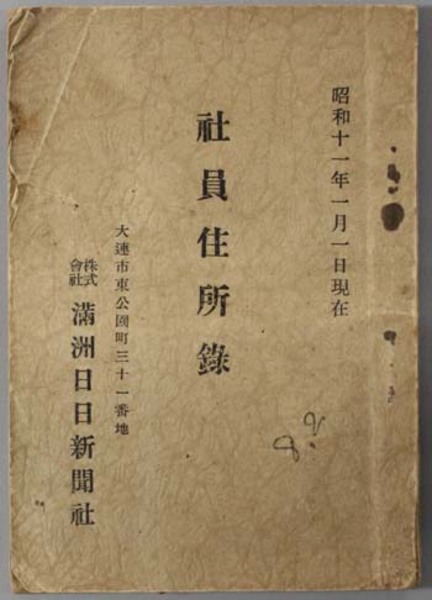 昭和十一年一月一日現在
社員住所錄
大連市東公園町三十一番地
株式會社 滿洲日日新聞社